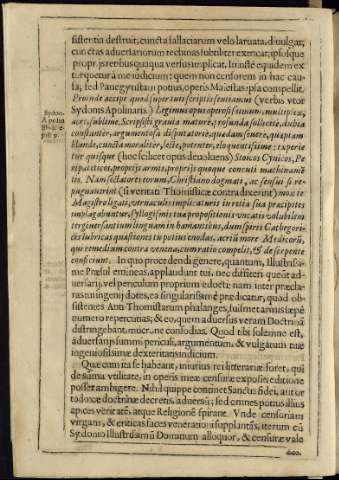 sistentia destruit; cuncta fallaciarum velo laruata, diuulgat;
cunctas aduersariorum technas subtiliter exenicat; ipsosque
proprijs retibus quaqua versus implicat. In iste equidem ex-
torquetur à me iudicium; quem non censorem in hac cau-
sa, sed Panegyristam potius, operis Maiestas ipsa compellit.
Proinde accipe quod super tuis scriptis sentiamus (verbis vtor
Sydonij Apolinaris.) Legimus opus operosissimum, multiplex,
acre, sublime. Scripsisti grauia maturè, profunda sollicitè, dubia
constanter, argumentosa disputatoriè, quædam seuerè, quæpiam
blandè, cuncta moraliter, lectè, potenter, eloquentissimè: experie-
tur quisque (hoc scilicet opus deuoluens) Stoicos, Cynicos, Pe-
ripateticos, proprijs armis, proprijs quoque concuti machinamē-
tis. Nam sectatores eorum, Christiano dogmati, ac sensui si re-
pugnauerint (si veritati Thomisticæ contradixerint) mox te
Magistro ligati, vernaculis implicaturis in retia sua præcipites
implagabuntur, syllogismis tuæ propositionis vncatis volubilem
tergiuersantium linguam inhamantibus, dum spiris Cathegori-
cis lubricas quæstiones tu potius innodas, acriū more Medicorū,
qui remedium contra venena, cum ratio compellit, & de serpente
conficiunt. In quo procedendi genere, quantum, Illustrissi-
me Præsul emineas, applaudunt tui, nec diffiteri queūt ad-
uersarij, vel periculum proprium edocti: nam inter præcla-
ras tui ingenij dotes, ea singularissimè prædicatur, quod ob-
sistentes Anti Thomistarum phalanges, suismet armis sæpè
numero repercutias; & eo, quem aduersus veram Doctrinā
distringebant, mucrone confodias. Quod tibi solemne est,
aduersarijs summi periculi, argumentum, & vulgatum tuæ
ingeniosissimæ dexteritatis indicium.
Quæ cum ita se habeant, iniurius rei litterariæ foret, qui
de summa vtilitate, in operis meæ censuræ expositi editione
posset ambigere. Nihil quippe continet Sanctæ fidei, aut or-
todoxæ doctrinæ decretis, aduersū; sed omnes potius illius
apices veritatē, atque Religionē spirant. Vnde censoriam
virgam, & criticas faces veneratiōi supplantās, iterum cū
Sydonio Illustrissimū Dominum alloquor, & censuræ vale
Sydon.
Apolin.